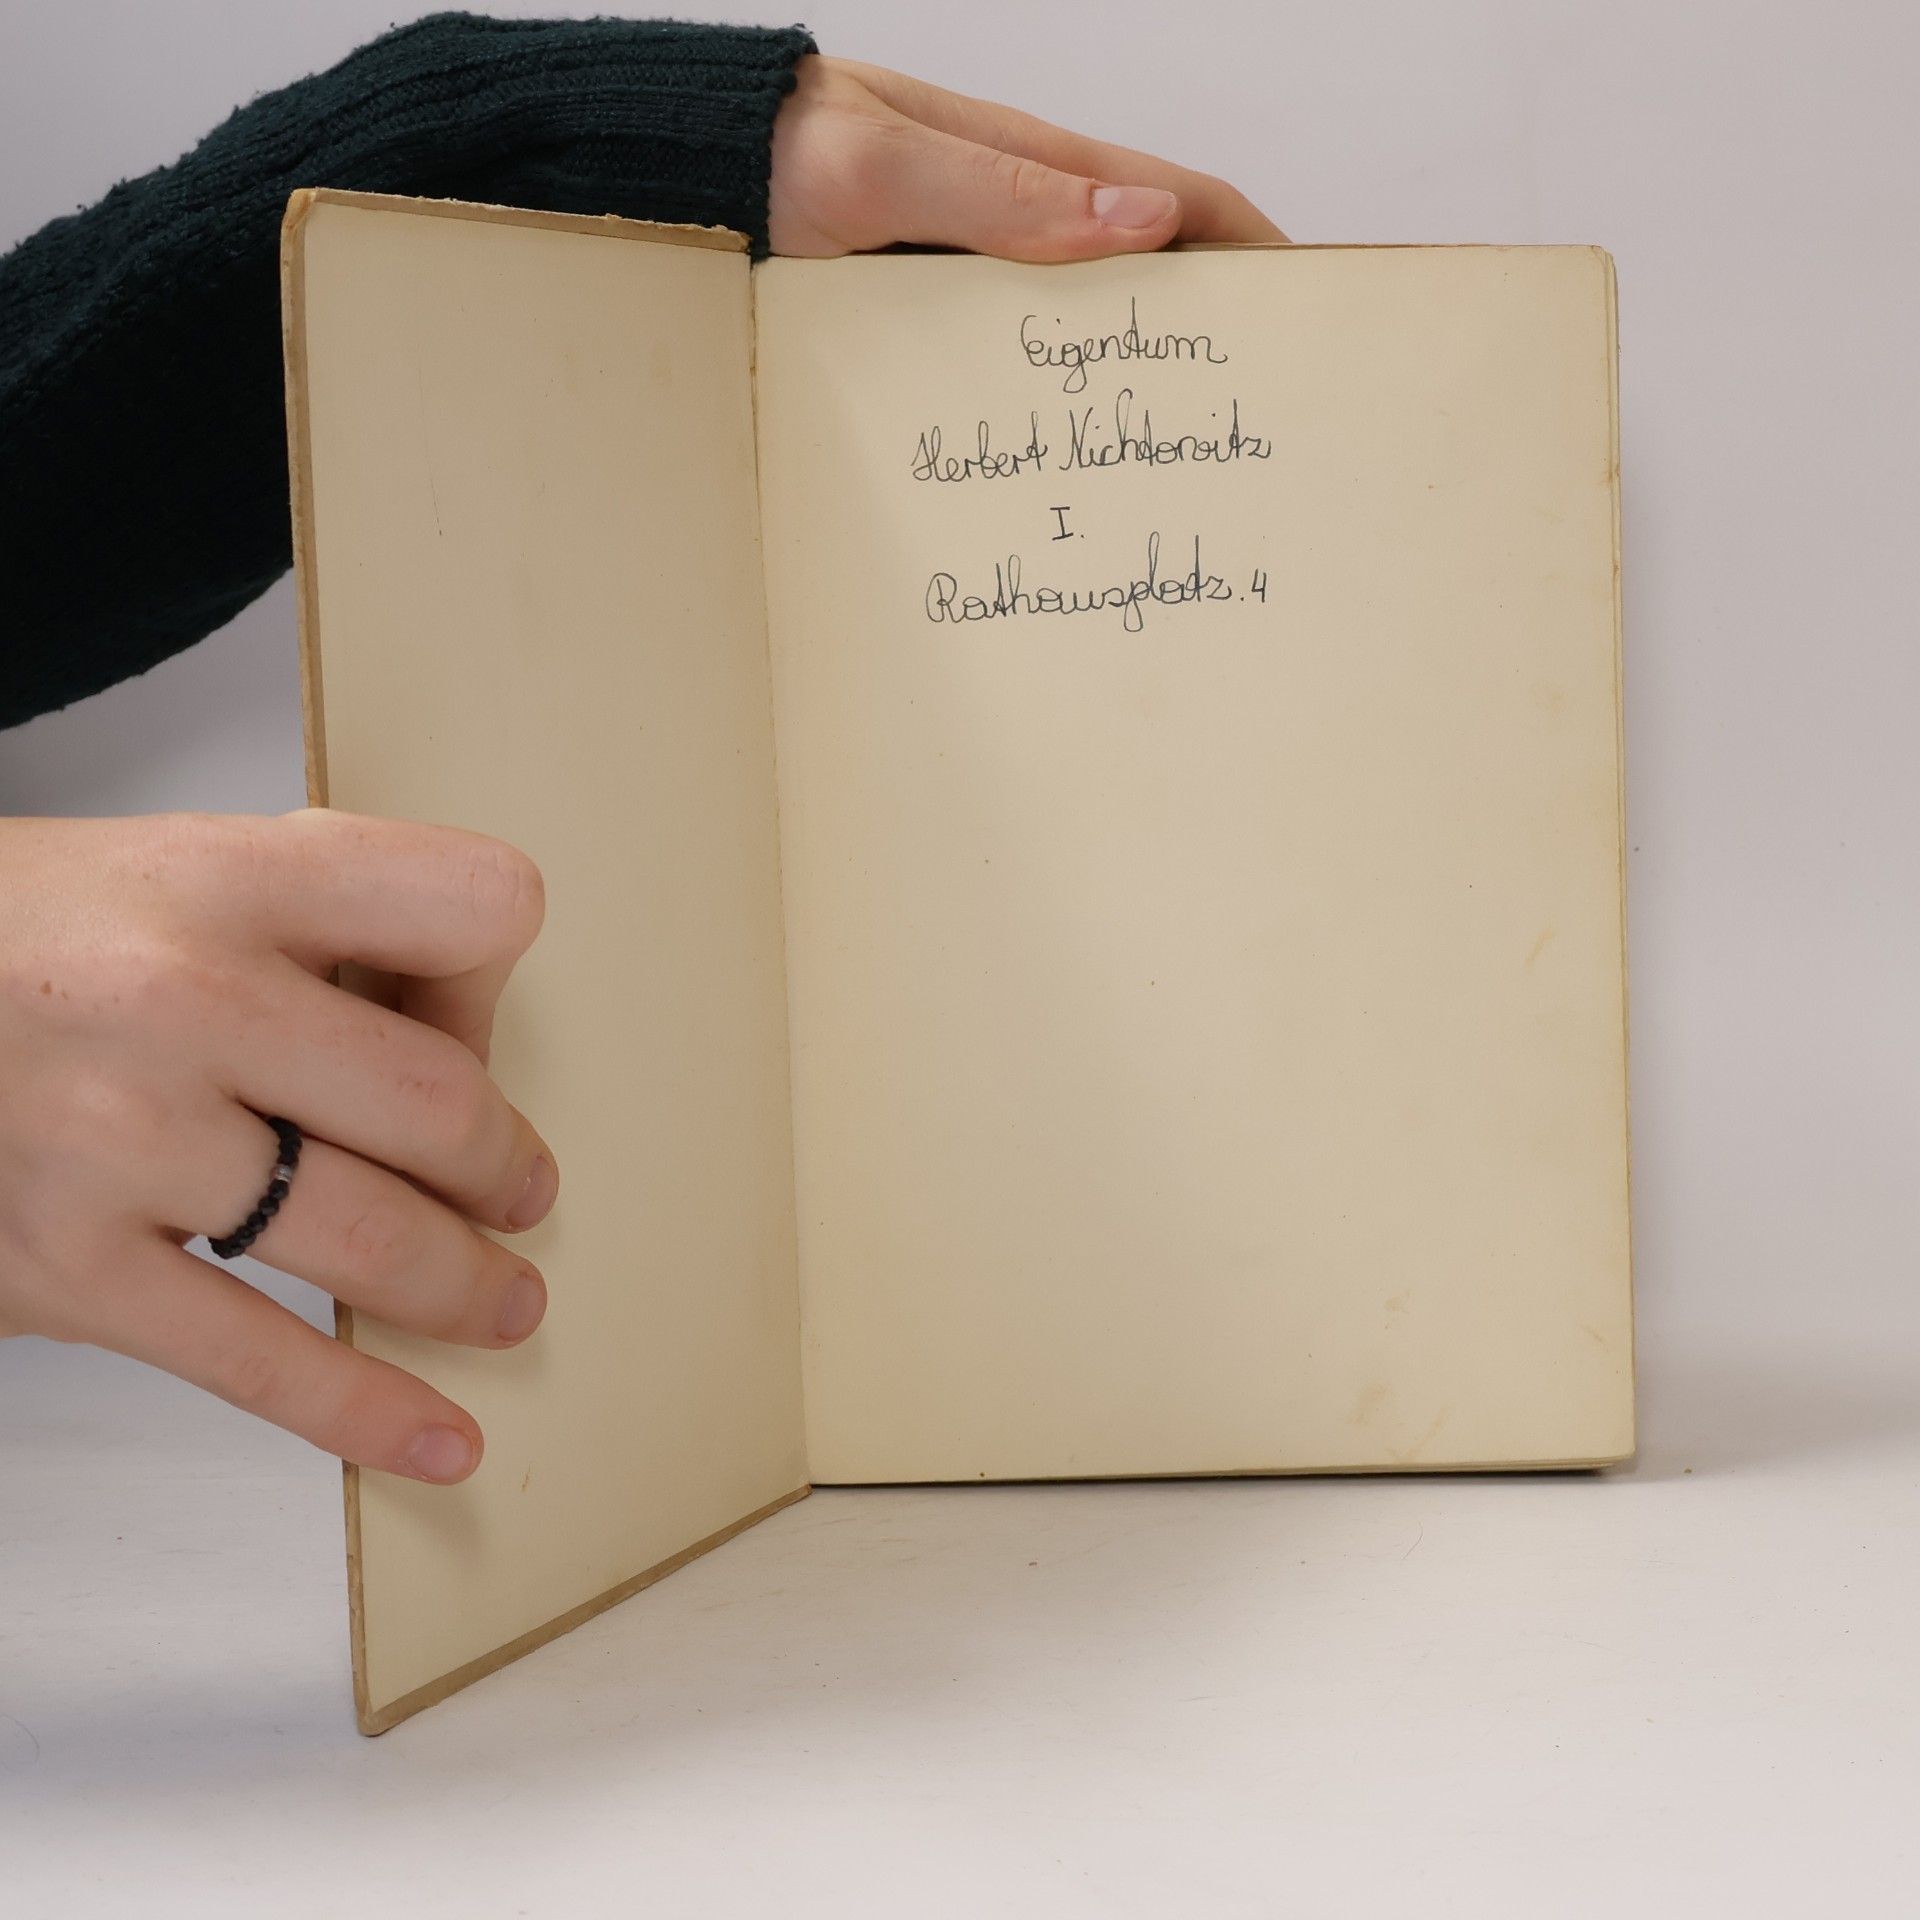 Eigentum
Herbert Nichtowitz
I.
Rathausplatz. 4